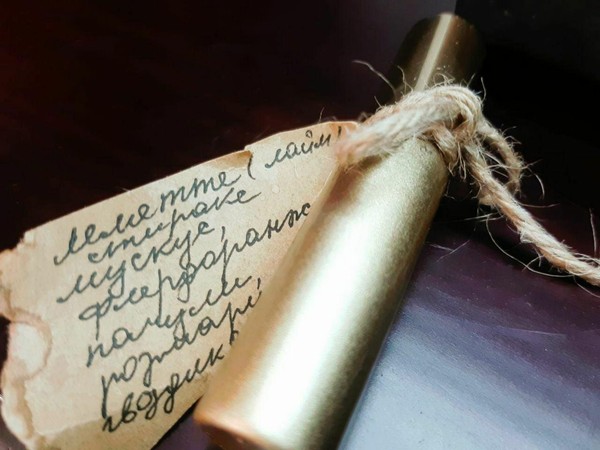 леметте (лайм)
стираке
мускус,
флерфоранж
пачули,
розмарі
гвоздик